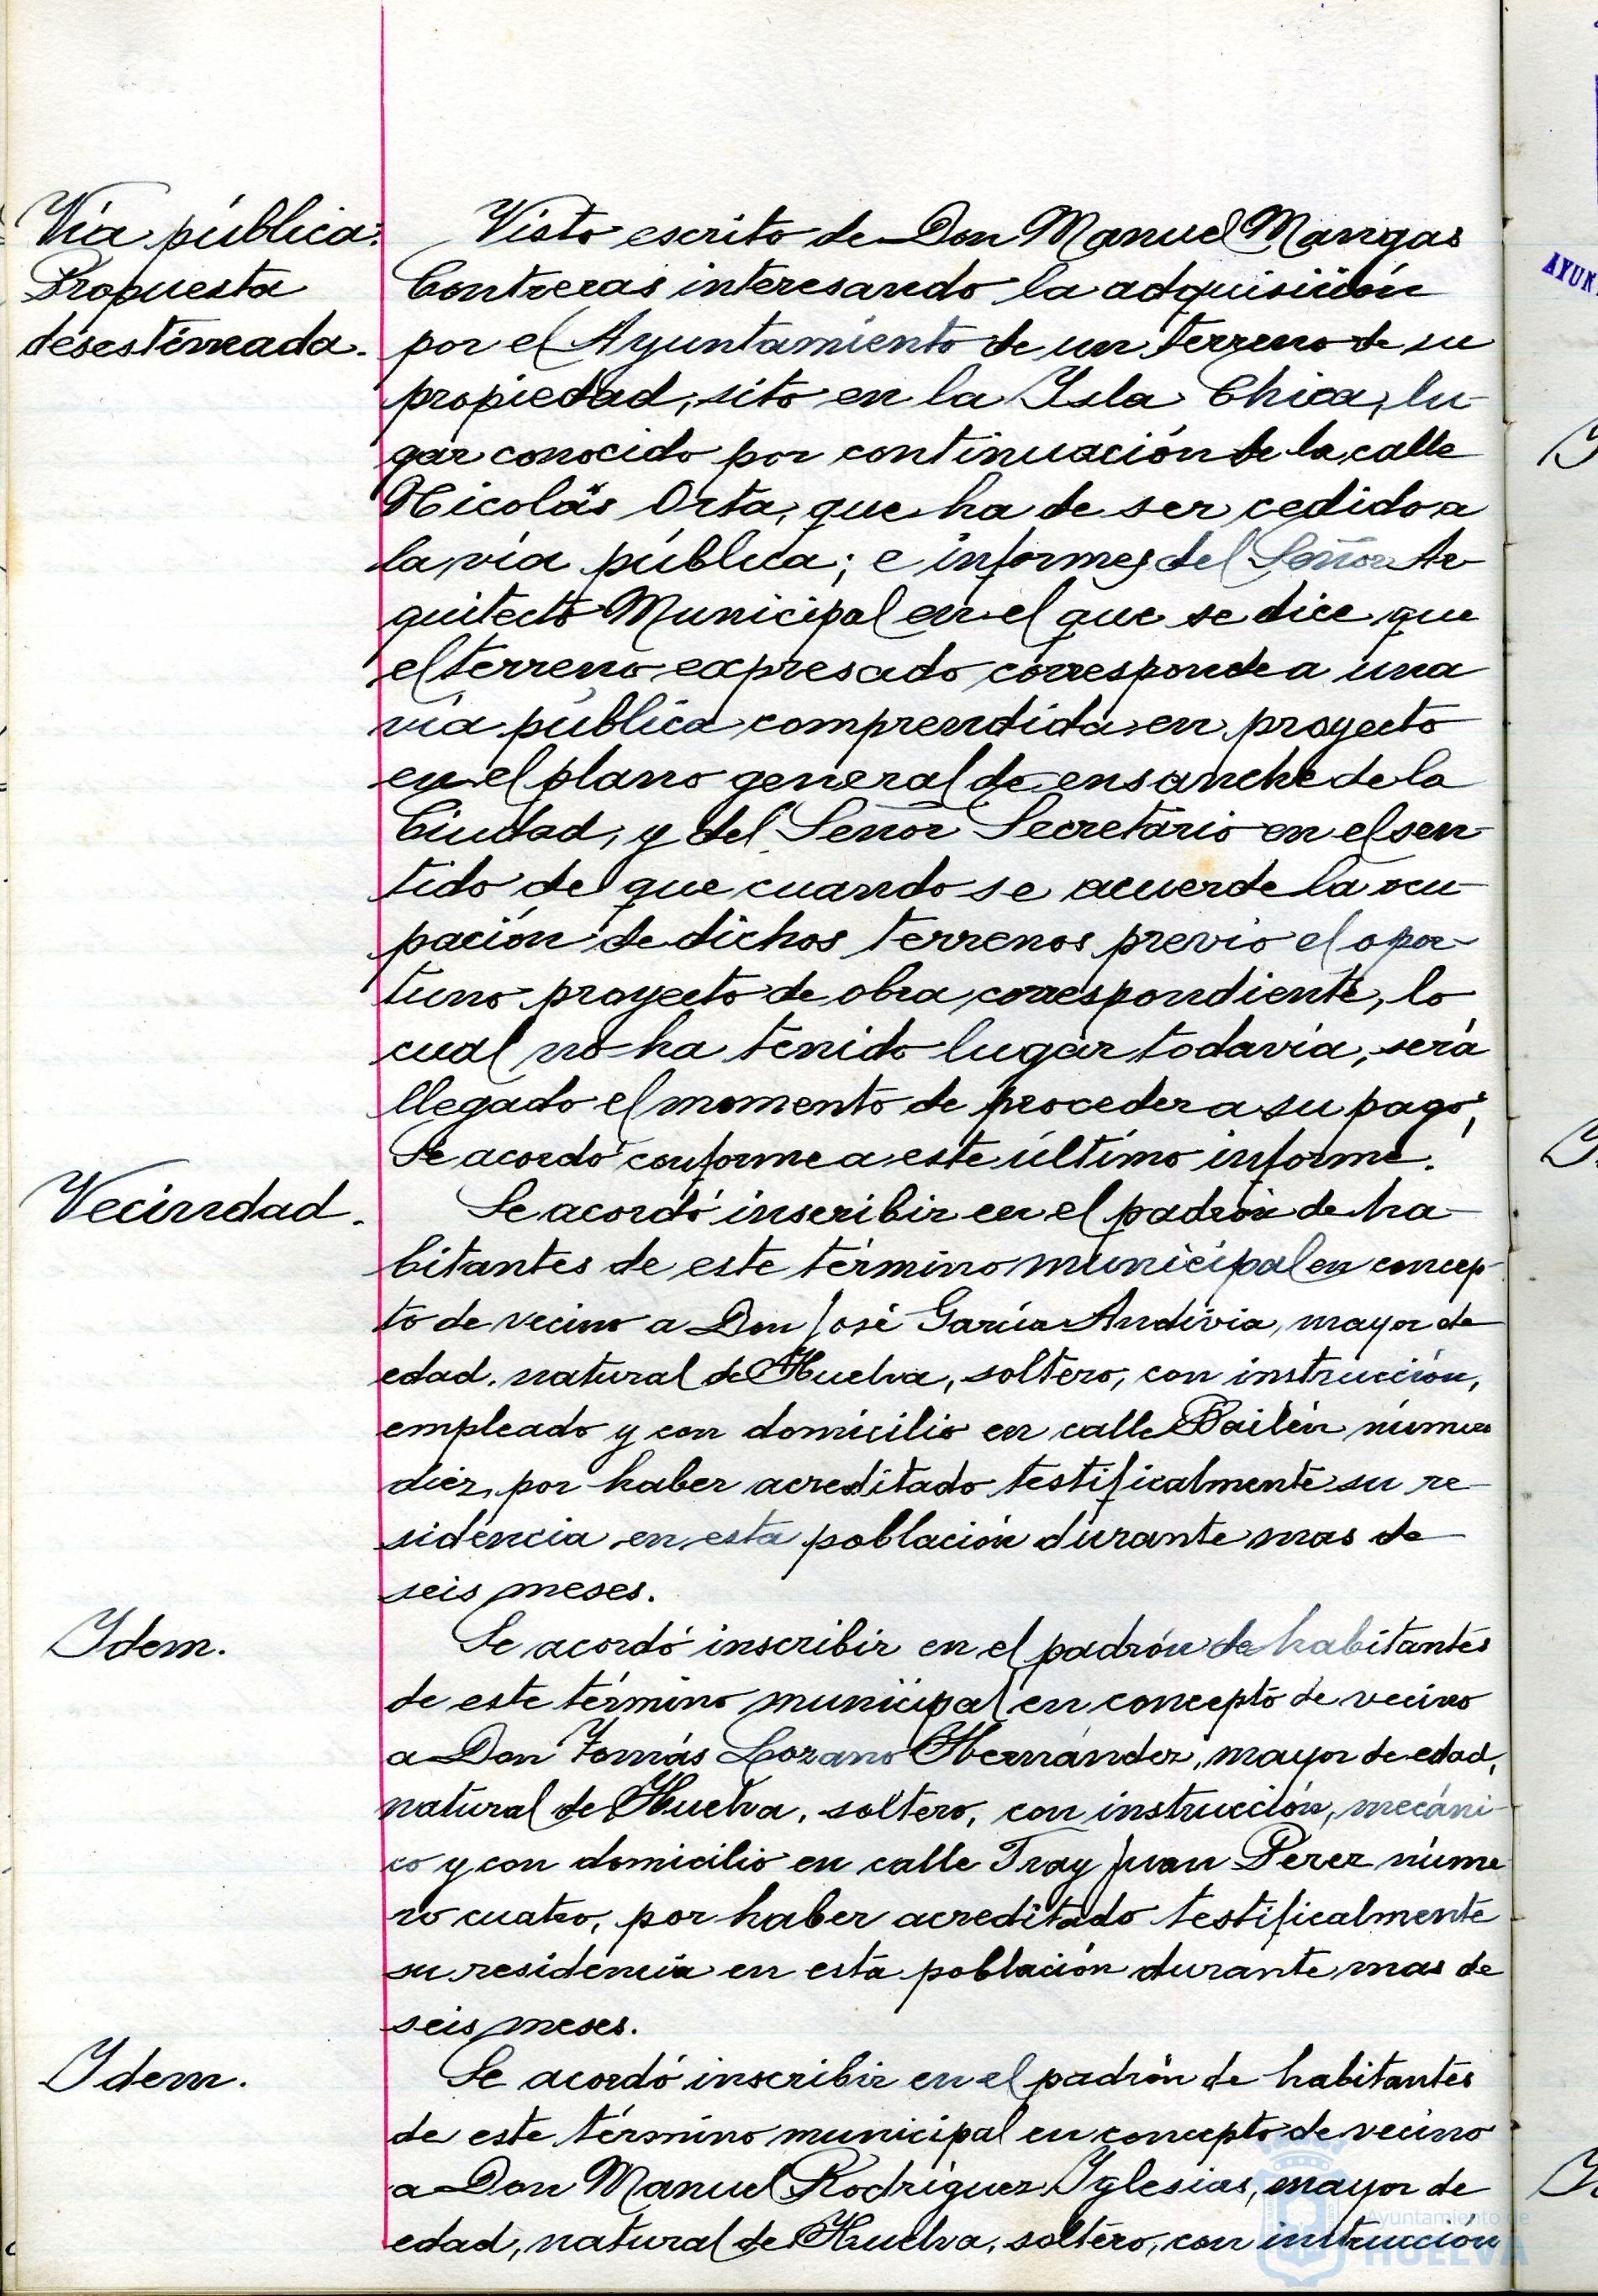 Vía pública.
Propuesta
desestimada.
Visto escrito de Don Manuel Mangas
Contreras interesando la adquisición
por el Ayuntamiento de un terreno de su
propiedad, sito en la Isla Chica, lu-
gar conocido por continuación de la calle
Nicolás Orta, que ha de ser cedido a
la vía pública; e informes del Señor Ar-
quitecto Municipal en el que se dice que
el terreno expresado corresponde a una
vía pública comprendida en proyecto
en el plano general de ensanche de la
Ciudad, y del Señor Secretario en el sen-
tido de que cuando se acuerde la ocu-
pación de dichos terrenos previo el opor-
tuno proyecto de obra correspondiente, lo
cual no ha tenido lugar todavía, será
llegado el momento de proceder a su pago;
Se acordó conforme a este último informe.
Vecindad.
Se acordó inscribir en el padrón de ha-
bitantes de este término municipal en concep-
to de vecino a Don José García Andivia, mayor de
edad, natural de Huelva, soltero, con instrucción,
empleado y con domicilio en calle Bailén número
diez, por haber acreditado testificalmente su re-
sidencia en esta población durante mas de
seis meses.
Idem.
Se acordó inscribir en el padrón de habitantes
de este término municipal en concepto de vecino
a Don Tomás Lozano Hernández, mayor de edad,
natural de Huelva, soltero, con instrucción, mecáni-
co y con domicilio en calle Fray Juan Pérez núme
ro cuatro, por haber acreditado testificalmente
su residencia en esta población durante mas de
seis meses.
Idem.
Se acordó inscribir en el padrón de habitantes
de este término municipal en concepto de vecino
a Don Manuel Rodríguez Iglesias, mayor de
edad, natural de Huelva, soltero, con instrucción
Ayuntamiento de
HUELVA